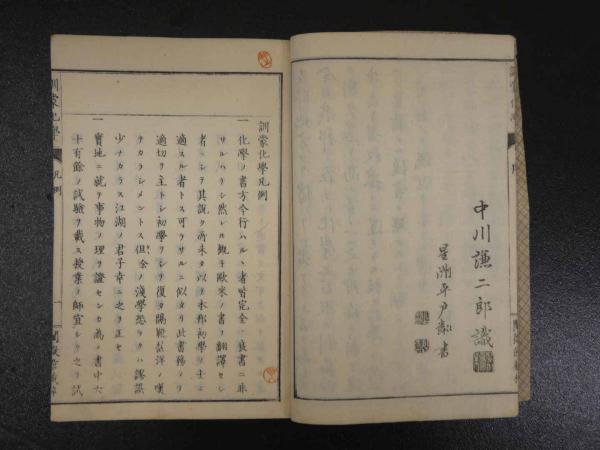 中川謙二郎識
訓蒙化學凡例
一 化學ノ書方今行ハルヽ者皆完全ノ良書ニ非
サルハナシ然レ𪜈概子歐米ノ書ヲ翻譯セシ
者ニシテ其説ク所未タ以テ本邦初學ノ士ニ
適スル者トス可ラサルニ似タリ此書務メテ
適切ヲ主トシ初學ヲシテ復タ隔靴
ナカラシメントス但余ノ淺學恐ラクハ謬誤
少ナカラス江湖ノ君子幸ニ之ヲ正セ
一 實地ニ就テ事物ノ理ヲ證センカ爲メ書中六
十有餘ノ試驗ヲ載ス授業ノ師宜シク之ヲ試
訓蒙化學
凡例
一